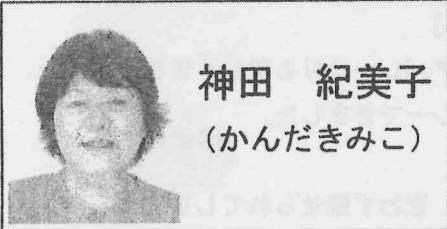 神田　紀美子
(かんだきみこ)